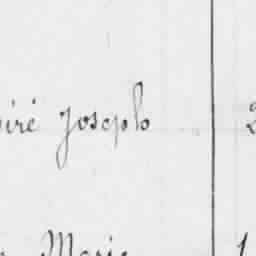 iré Joseph 2
Marie 1